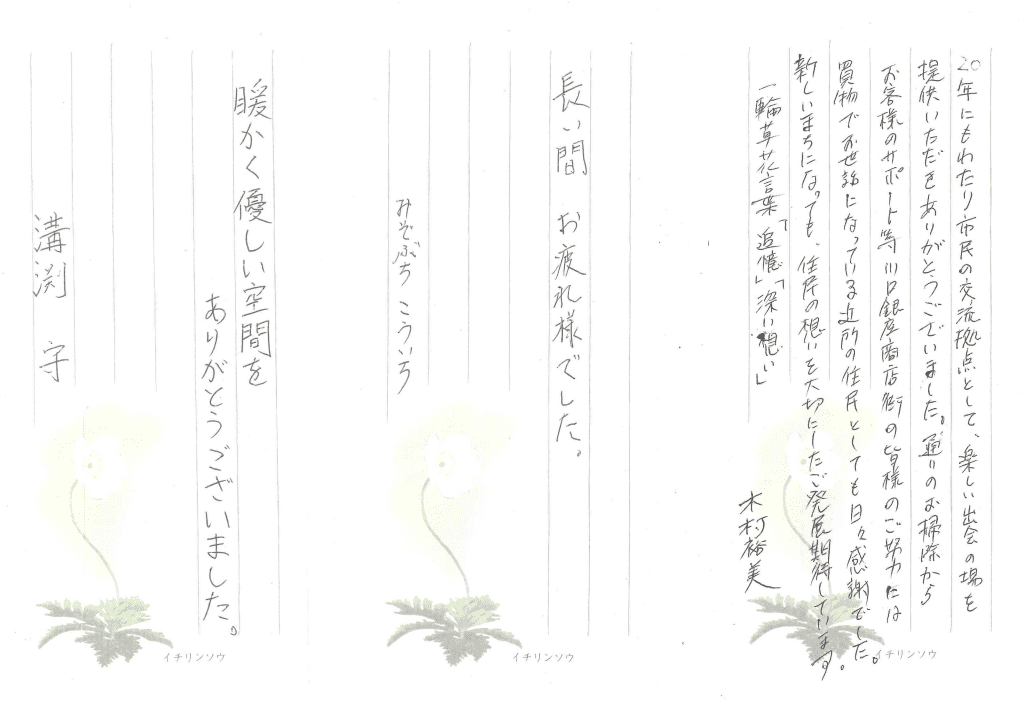 20年にもわたり市民の交流拠点として、楽しい出会の場を
提供いただきありがとうございました。通りのお掃除から
お客様のサポート等川口銀座商店街の皆様のご努力には
買物でお世話になっている近所の住民としても日々感謝でした。
新しいまちになっても、住民の想いを大切にしたご発展期待しています。
一輪草花言葉「追憶」「深い想い」
木村裕美
イチリンソウ
長い間 お疲れ様でした。
みぞぶち こういち
イチリンソウ
暖かく優しい空間を
ありがとうございました。
溝渕 守
イチリンソウ